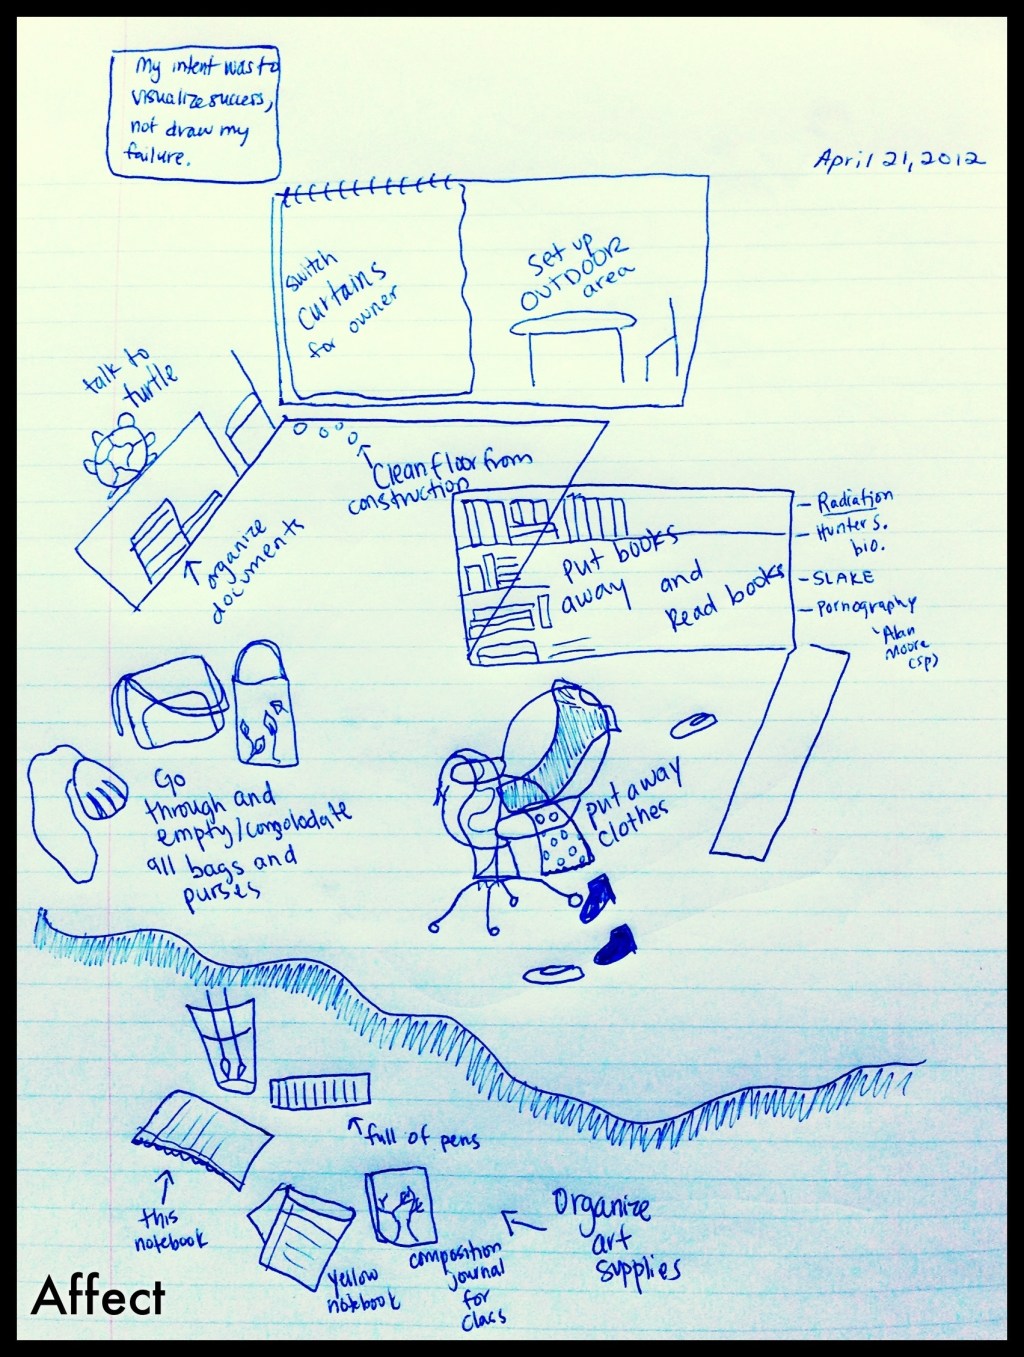 My intent was to
visualize success,
not draw my
failure.
April 21, 2012
switch
curtains
for owner
Set up
OUTDOOR
area
talk to
turtle
Clean floor from
construction
organize
documents
Put books
away and
Read books
- Radiation
- Hunter S.
bio.
- SLAKE
- Pornography
Alan
Moore
(sp)
Go
through and
empty/consolodate
all bags and
purses
put away
clothes
full of pens
this
notebook
yellow
notebook
composition
journal
for
class
Organize
art
supplies
Affect